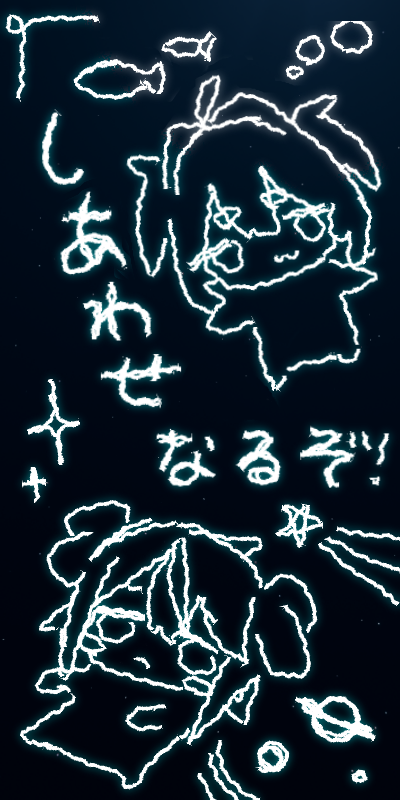 しあわせ
なるぞ!!